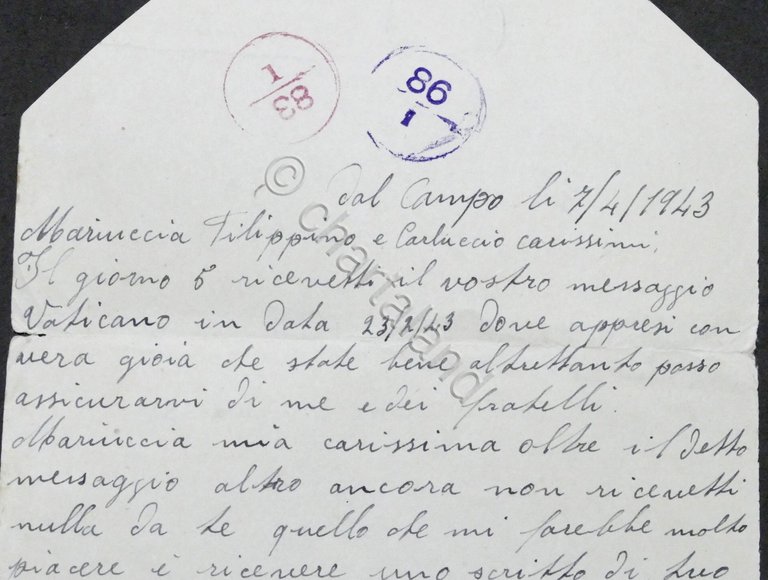 1/88
98/1
dal Campo li 7/4/1943
Mariuccia Filippino e Carluccio carissimi,
Il giorno 5 ricevetti il vostro messaggio
Vaticano in data 23/2/43 dove appresi con
vera gioia che state bene altrettanto posso
assicurarvi di me e dei fratelli.
Mariuccia mia carissima oltre il detto
messaggio altro ancora non ricevetti
nulla da te quello che mi farebbe molto
piacere è ricevere uno scritto di tuo
© chartaland